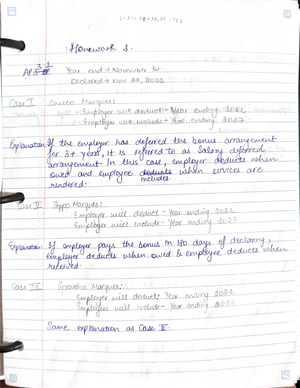 Homework 3.
AP 3-1 Year end → November 30.
Declared → Nov 29, 2022
Case I Chico Marques:
Employer will deduct - Year ending 2022
Employer will include - Year ending 2022
Explanation If the employer has deferred the bonus arrangement
for 3+ years, it is referred to as salary deferred
arrangement. In this case, employer deducts when
owed and employee deducts when services are
includes
rendered.
Case II Zeppo Marques:
Employer will deduct - Year ending 2022
Employer will include - Year ending 2023
Explanation: If employer pays the bonus in 180 days of declaring,
employer deducts when owed & employee deducts when
received.
Case III Groucho Marques:
Employer will deduct: Year ending 2022
Employees will include - Year ending
Same explanation as Case II.